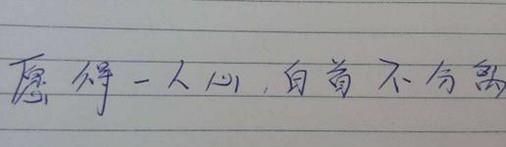 愿得一人心,白首不分离